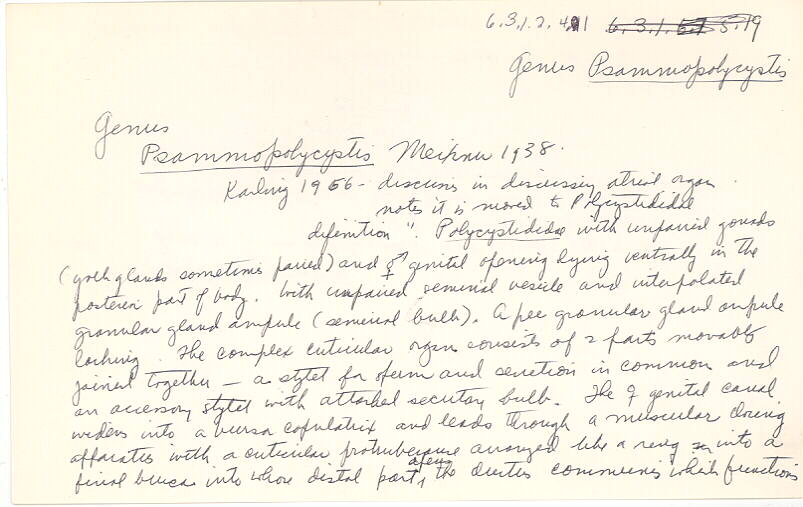 6.3.1.2.4.1 6.3.1. 5.19
Genus Psammopolycystis
Genus
Psammopolycystis Meixner 1938.
Karling 1956 - discusses in discussing atrial organ
notes it is moved to Polycystididae
difinition ": Polycystididae with unpaired gonads
(yolk glands sometimes paired) and ⚥ genital opening lying ventrally in the
posterior part of body. With unpaired seminal vesicle and interpolated
granular gland ampule (seminal bulb). A free granular gland ampule
lacking. The complex cuticular organ consists of 2 parts movably
joined together - a stylet for sperm and secretion in common and
an accessory stylet with attached secretory bulb. The ♀ genital canal
widens into a bursa copulatrix and leads through a muscular closing
apparatus with a cuticular protuberance arranged like a ring into a
final bursa into whose distal part opens the ductus communis which functions